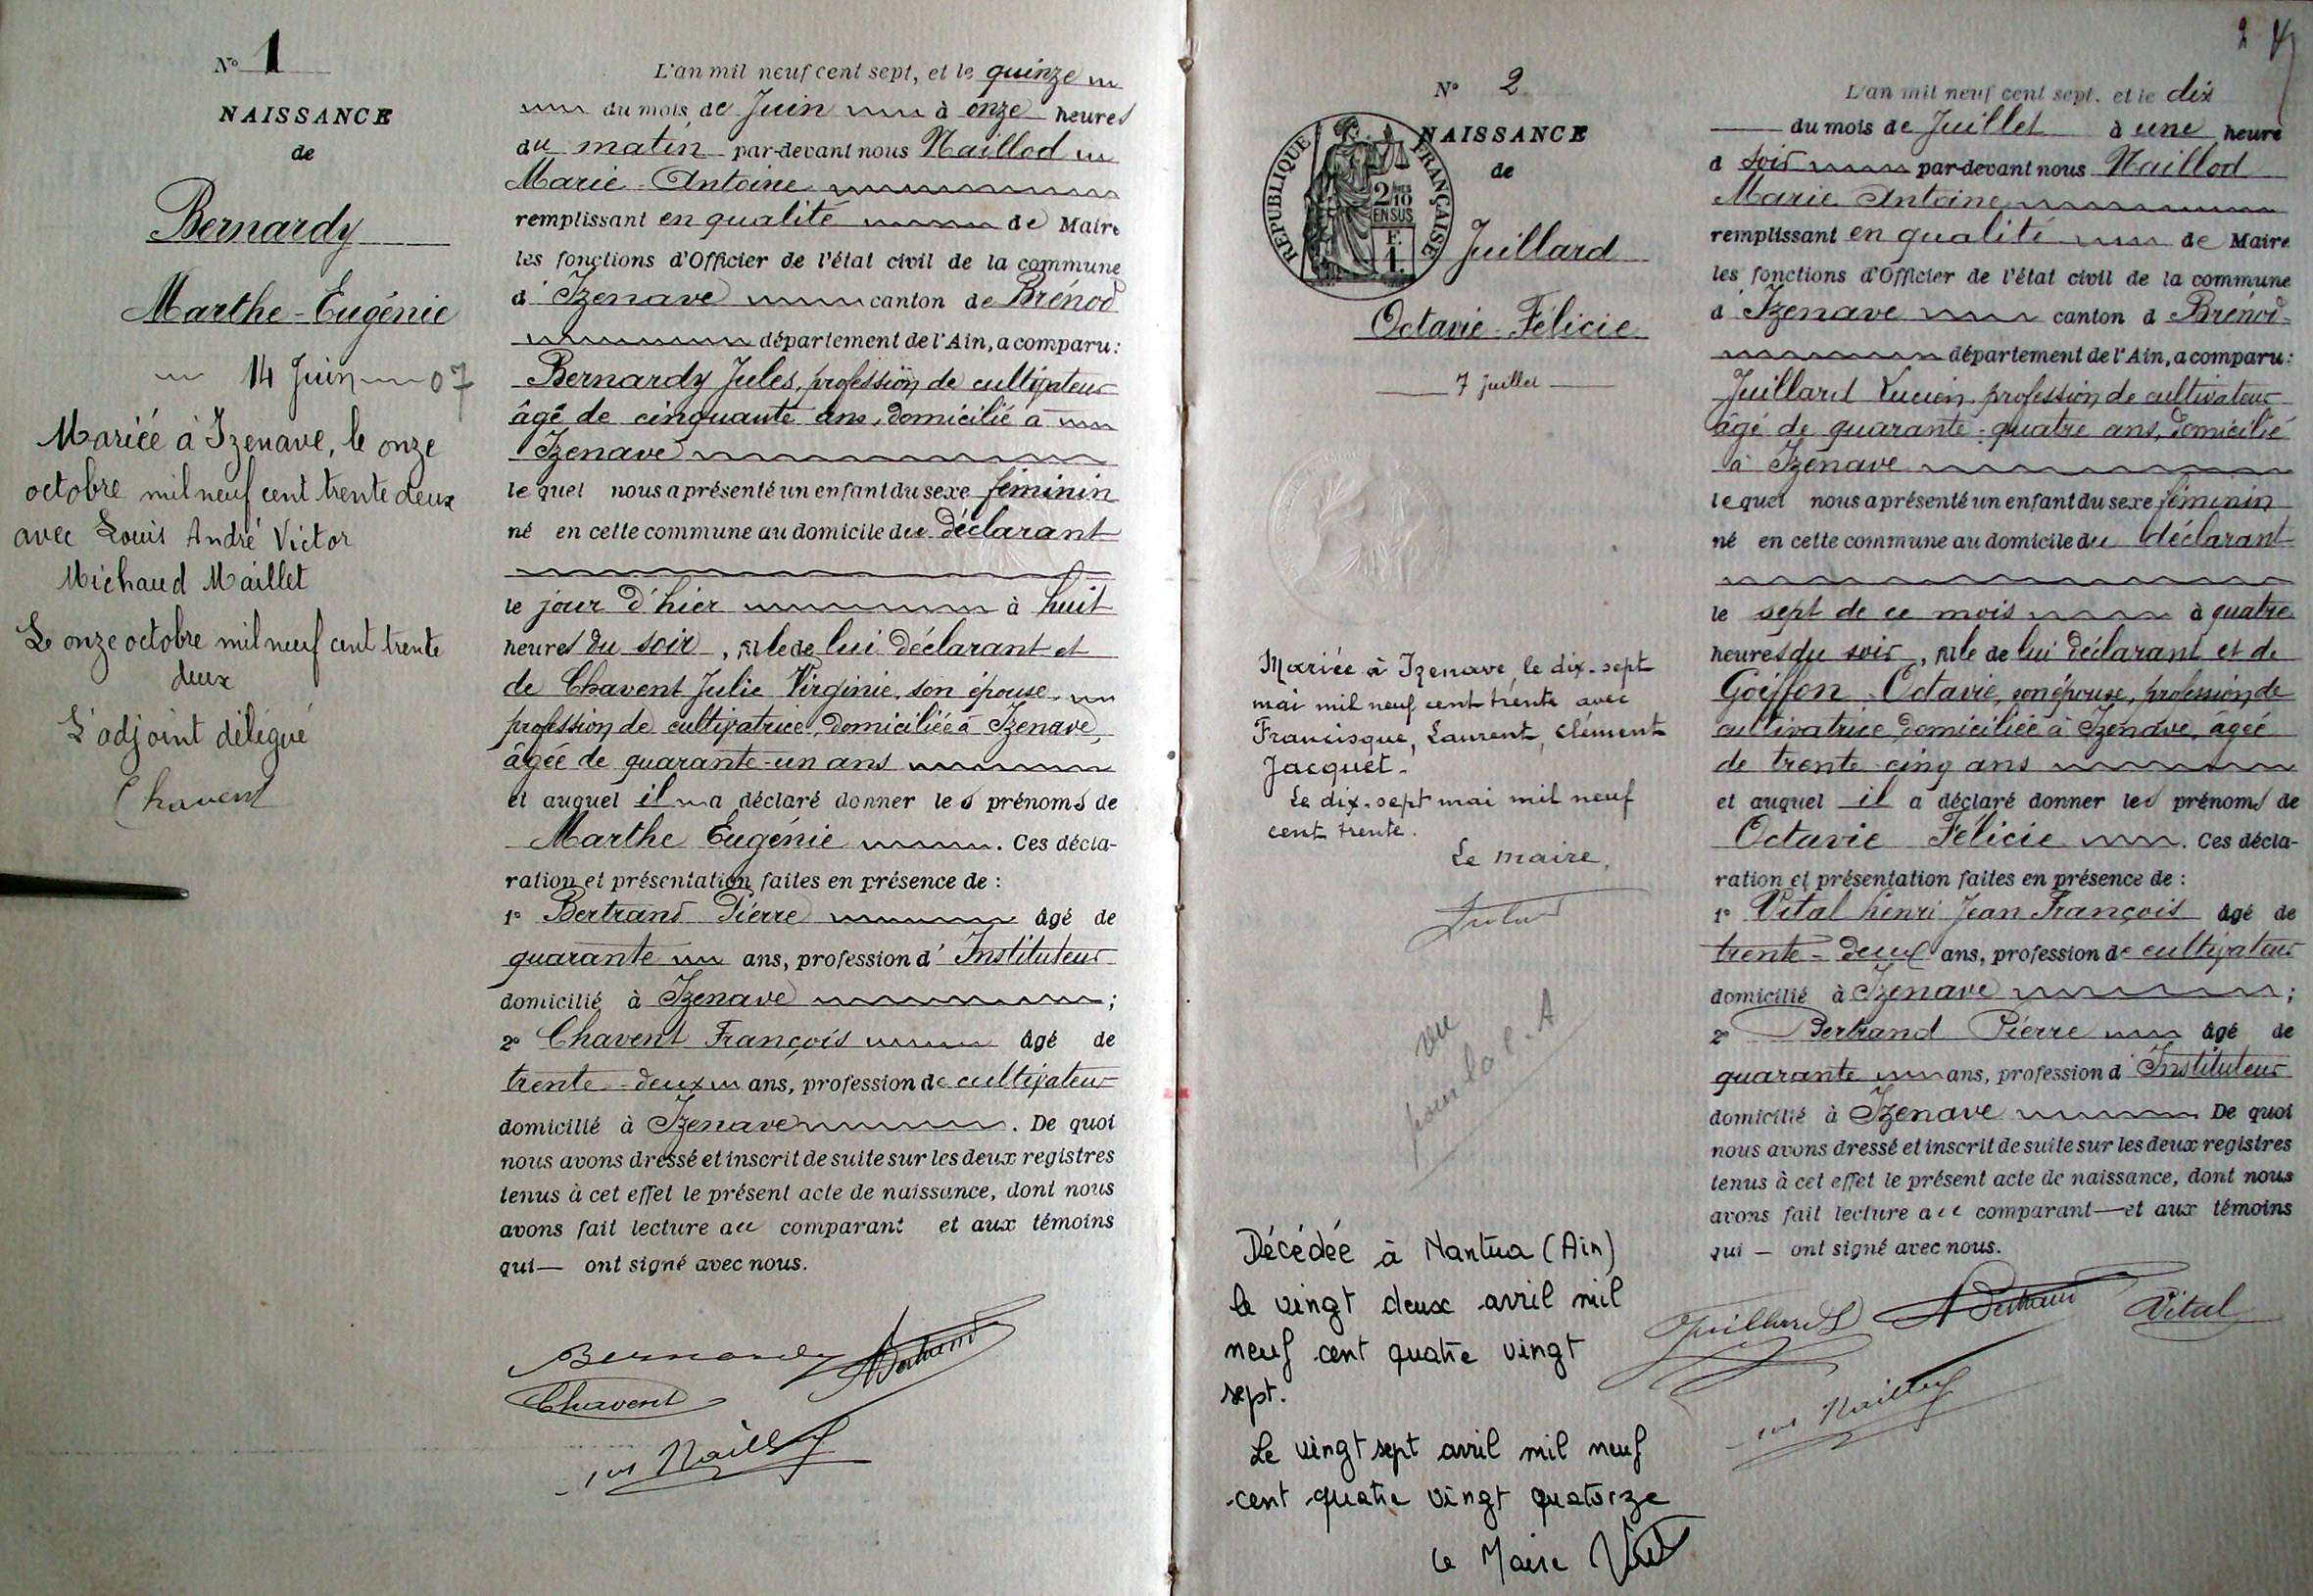 N° 1
NAISSANCE
de
Bernardy
Marthe-Eugénie
14 Juin 07
Mariée à Izenave, le onze
octobre mil neuf cent trente deux
avec Louis André Victor
Michaud Maillet
Le onze octobre mil neuf cent trente
deux
L'adjoint délégué
Chavent
L'an mil neuf cent sept, et le quinze
du mois de Juin à onze heures
du matin par-devant nous Naillod
Marie-Antoine
remplissant en qualité de Maire
les fonctions d'Officier de l'état civil de la commune
d'Izenave canton de Brénod
département de l'Ain, a comparu:
Bernardy Jules, profession de cultivateur
âgé de cinquante ans, domicilié à
Izenave
lequel nous a présenté un enfant du sexe féminin
né en cette commune au domicile du déclarant
le jour d'hier à huit
heures du soir, fille de lui déclarant et
de Chavent Julie Virginie, son épouse,
profession de cultivatrice, domiciliée à Izenave,
âgée de quarante-un ans
et auquel il a déclaré donner les prénoms de
Marthe Eugénie. Ces décla-
ration et présentation faites en présence de :
1° Bertrand Pierre âgé de
quarante ans, profession d'Instituteur
domicilié à Izenave ;
2° Chavent François âgé de
trente-deux ans, profession de cultivateur
domicilié à Izenave. De quoi
nous avons dressé et inscrit de suite sur les deux registres
tenus à cet effet le présent acte de naissance, dont nous
avons fait lecture au comparant et aux témoins
qui — ont signé avec nous.
Bernardy Bertrand
Chavent
Naillod
2
N° 2
NAISSANCE
de
RÉPUBLIQUE FRANÇAISE
2/10
EN SUS
F.
1.
Juillard
Octavie-Félicie
7 juillet
Mariée à Izenave, le dix-sept
mai mil neuf cent trente avec
Francisque, Laurent, Clément
Jacquet.
Le dix-sept mai mil neuf
cent trente.
Le maire,
vu
pour la C. A
Décédée à Nantua (Ain)
le vingt deux avril mil
neuf cent quatre vingt
sept.
Le vingt sept avril mil neuf
cent quatre vingt quatorze
le Maire
L'an mil neuf cent sept, et le dix
du mois de Juillet à une heure
d soir par-devant nous Naillod
Marie Antoine
remplissant en qualité de Maire
les fonctions d'Officier de l'état civil de la commune
d'Izenave canton d Brénod
département de l'Ain, a comparu:
Juillard Lucien, profession de cultivateur
âgé de quarante-quatre ans, domicilié
à Izenave
lequel nous a présenté un enfant du sexe féminin
né en cette commune au domicile du déclarant
le sept de ce mois à quatre
heures du soir, fille de lui déclarant et de
Goiffon Octavie, son épouse, profession de
cultivatrice domiciliée à Izenave, âgée
de trente cinq ans
et auquel il a déclaré donner les prénoms de
Octavie Félicie. Ces décla-
ration et présentation faites en présence de :
1° Vital henri Jean François âgé de
trente-deux ans, profession de cultivateur
domicilié à Izenave ;
2° Bertrand Pierre âgé de
quarante ans, profession d'Instituteur
domicilié à Izenave De quoi
nous avons dressé et inscrit de suite sur les deux registres
tenus à cet effet le présent acte de naissance, dont nous
avons fait lecture au comparant — et aux témoins
qui — ont signé avec nous.
Juillard L Bertrand Vital
Naillod